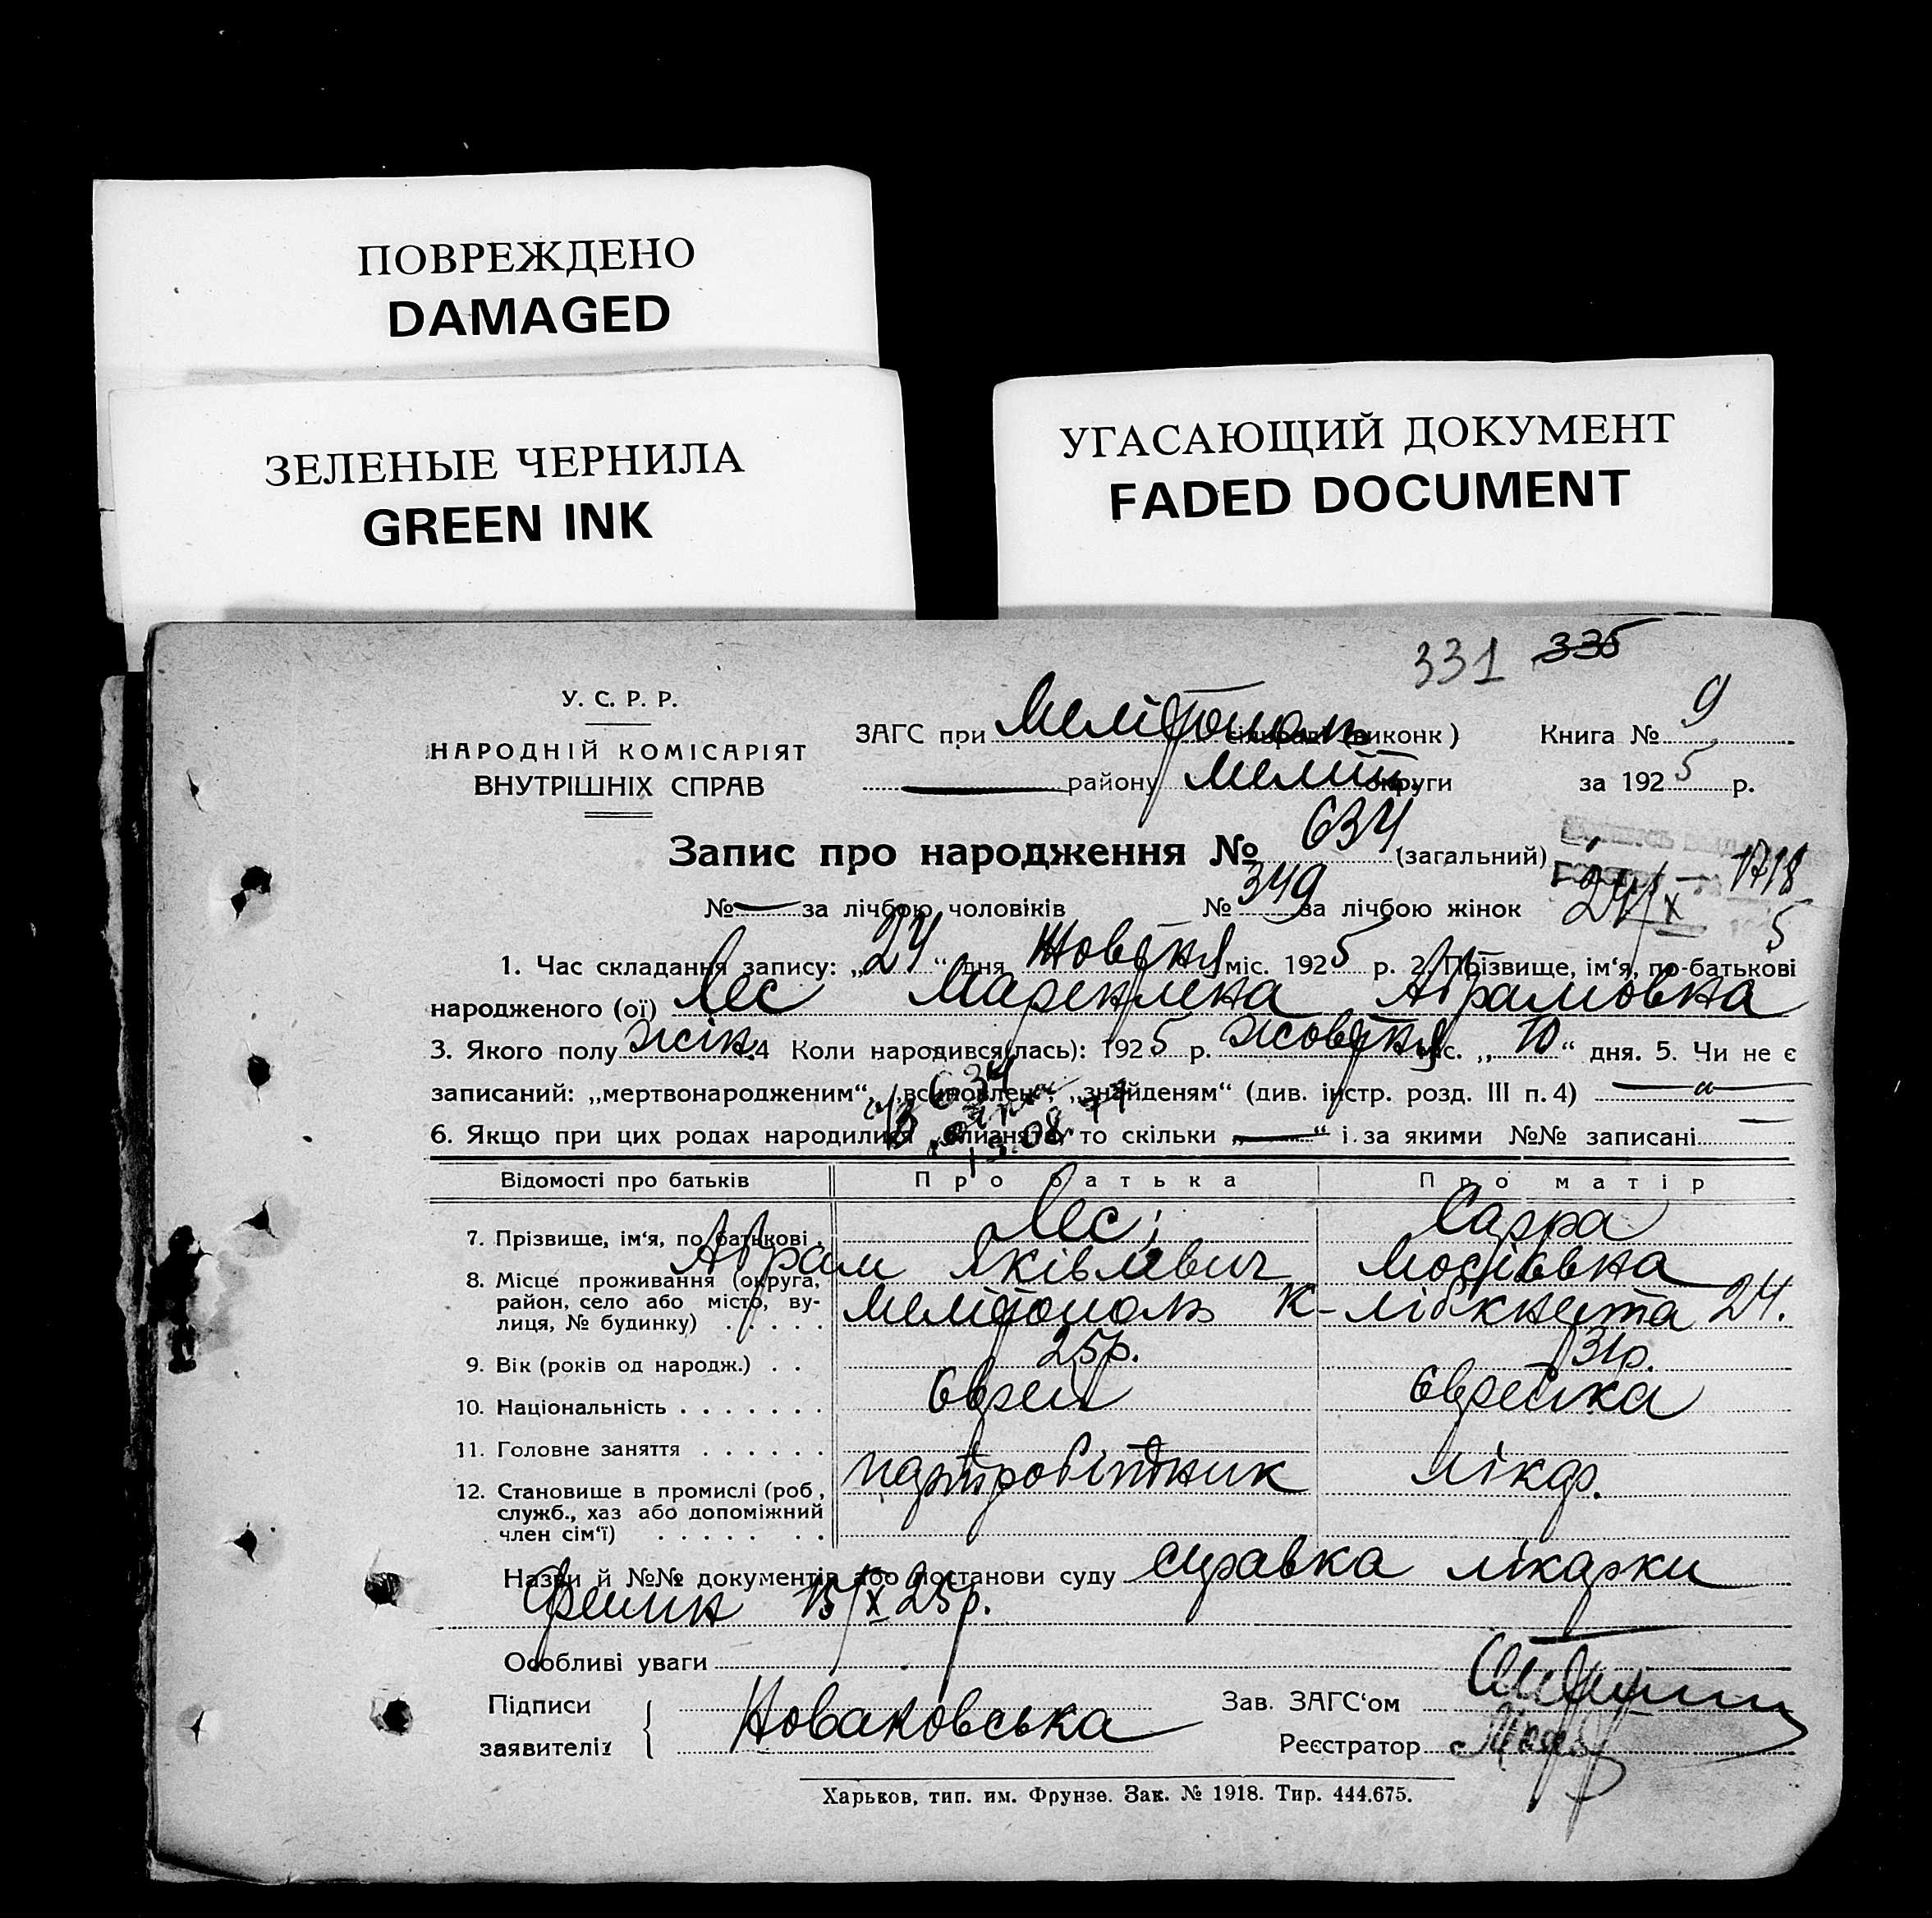 ПОВРЕЖДЕНО
DAMAGED
ЗЕЛЕНЫЕ ЧЕРНИЛА
GREEN INK
УГАСАЮЩИЙ ДОКУМЕНТ
FADED DOCUMENT
331 335
У. С. Р. Р.
НАРОДНІЙ КОМІСАРІЯТ
ВНУТРІШНІХ СПРАВ
ЗАГС при Мелітополь сільраді (виконк) Книга № 9
району Меліт. округи за 1925 р.
Запис про народження № 634 (загальний)
№ — за лічбою чоловіків № 349 за лічбою жінок
24/X 1718
5
1. Час складання запису: „24“ дня Жовтня міс. 1925 р. 2. Прізвище, ім‘я, по-батькові
народженого (ої) Лес Марклена Абрамовна
3. Якого полу жін. 4 Коли народився(лась): 1925 р. жовтня міс. „10“ дня. 5. Чи не є
записаний: „мертвонародженим“, „всиновлене“, „знайденям“ (див. інстр. розд. III п. 4) —
634
13.08.71
6. Якщо при цих родах народилися близнята, то скільки „—“ і за якими №№ записані —
Відомості про батьків Про батька Про матір
7. Прізвище, ім‘я, по батькові Лес; Сарра
Абрам Яківлевич Мосіївна
8. Місце проживання (округа, район, село або місто, вулиця, № будинку) Мелітополь К-Лібкнехта 24.
9. Вік (років од народж.) 25р. 31р.
10. Національність єврей єврейка
11. Головне заняття партробітник лікар.
12. Становище в промислі (роб, служб., хаз або допоміжний член сім‘ї)
Назви й №№ документів або постанови суду справка лікарки
15/X 25р.
Особливі уваги
Підписи заявителів Новаковська
Зав. ЗАГС‘ом
Реєстратор
Харьков, тип. им. Фрунзе. Зак. № 1918. Тир. 444.675.